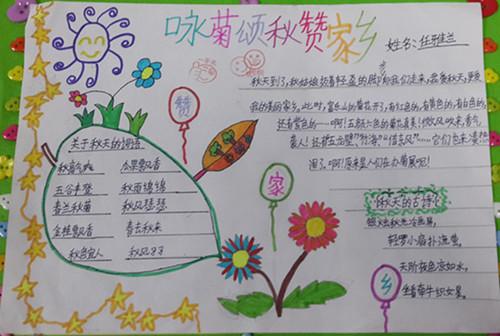 咏菊颂秋赞家乡
姓名:任雅兰
秋天到了,秋姑娘迈着轻盈的脚步向我们走来,我爱秋天,更爱
我的美丽家乡。此时,的菊花开了,有红色的,有黄色的,有白色的,
还有紫色的……啊!五颜六色的菊花真美!微风吹来,香气
袭人!
泗了。啊!原来是人们在办菊展呢!
赞
关于秋天的词语
秋高气爽 瓜果飘香
五谷丰登 秋雨绵绵
春兰秋菊 秋风瑟瑟
金桂飘香 春去秋来
秋色宜人 秋风习习
家
秋天的古诗
银烛秋光冷画屏,
轻罗小扇扑流萤。
天阶夜色凉如水,
坐看牵牛织女星。
乡